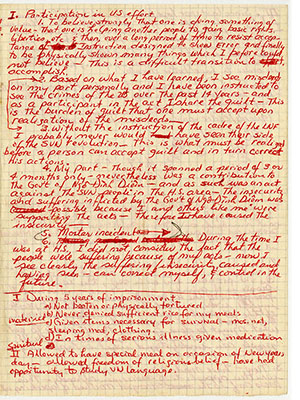 I. Participation in US effort
1. To believe strongly that one is doing something of
value - that one is helping another people to gain basic rights
liberties, etc. & then over a long period of time to resist accep-
tance of instruction designed to show error and finally
to be physically shown many things which I before could
not believe - This is a difficult transition to
accomplish.
2. Based on what I have learned, I see misdeeds
on my part personally and I have been instructed to
see the crimes of the US over the past 19 years - and
as a participant in the act I share the guilt - This
is the burden of guilt that one must accept upon
realization of the misdeeds.
3. Without the instruction of the cadre of the LNF
I probably never would have seen their side
of the SVN Revolution - this is what must be realized
before a person can accept guilt and in turn correct
his actions.
4. My part - though it spanned a period of 3 or
4 months it nevertheless was a contribution to
the Govt of Ngo Dinh Diem - and as such was an act
against the SVN people in the H.S. area - The insecurity
and suffering inflicted by the Govt of Ngo Dinh Diem was
possible because I and others like me were
supporting the acts - Therefore I have caused the
insecurity.
5. Mortar incident
6. During the time I
was at H.S. I did not consider the fact that the
people were suffering because of my acts - now I
see clearly the suffering & insecurity caused and
implied - I can correct myself, & control in the
future -
I During 5 years of imprisonment
a) Not beaten or physically tortured
material b) Never denied sufficient rice for my meals
c) Given items necessary for survival - mos. net,
sleeping mat, clothing
d) In times of serious illness given medication
Spiritual
II Allowed to have special meal on occasion of New Years
day - allowed freedom of religious belief - have had
opportunity to study VN language.